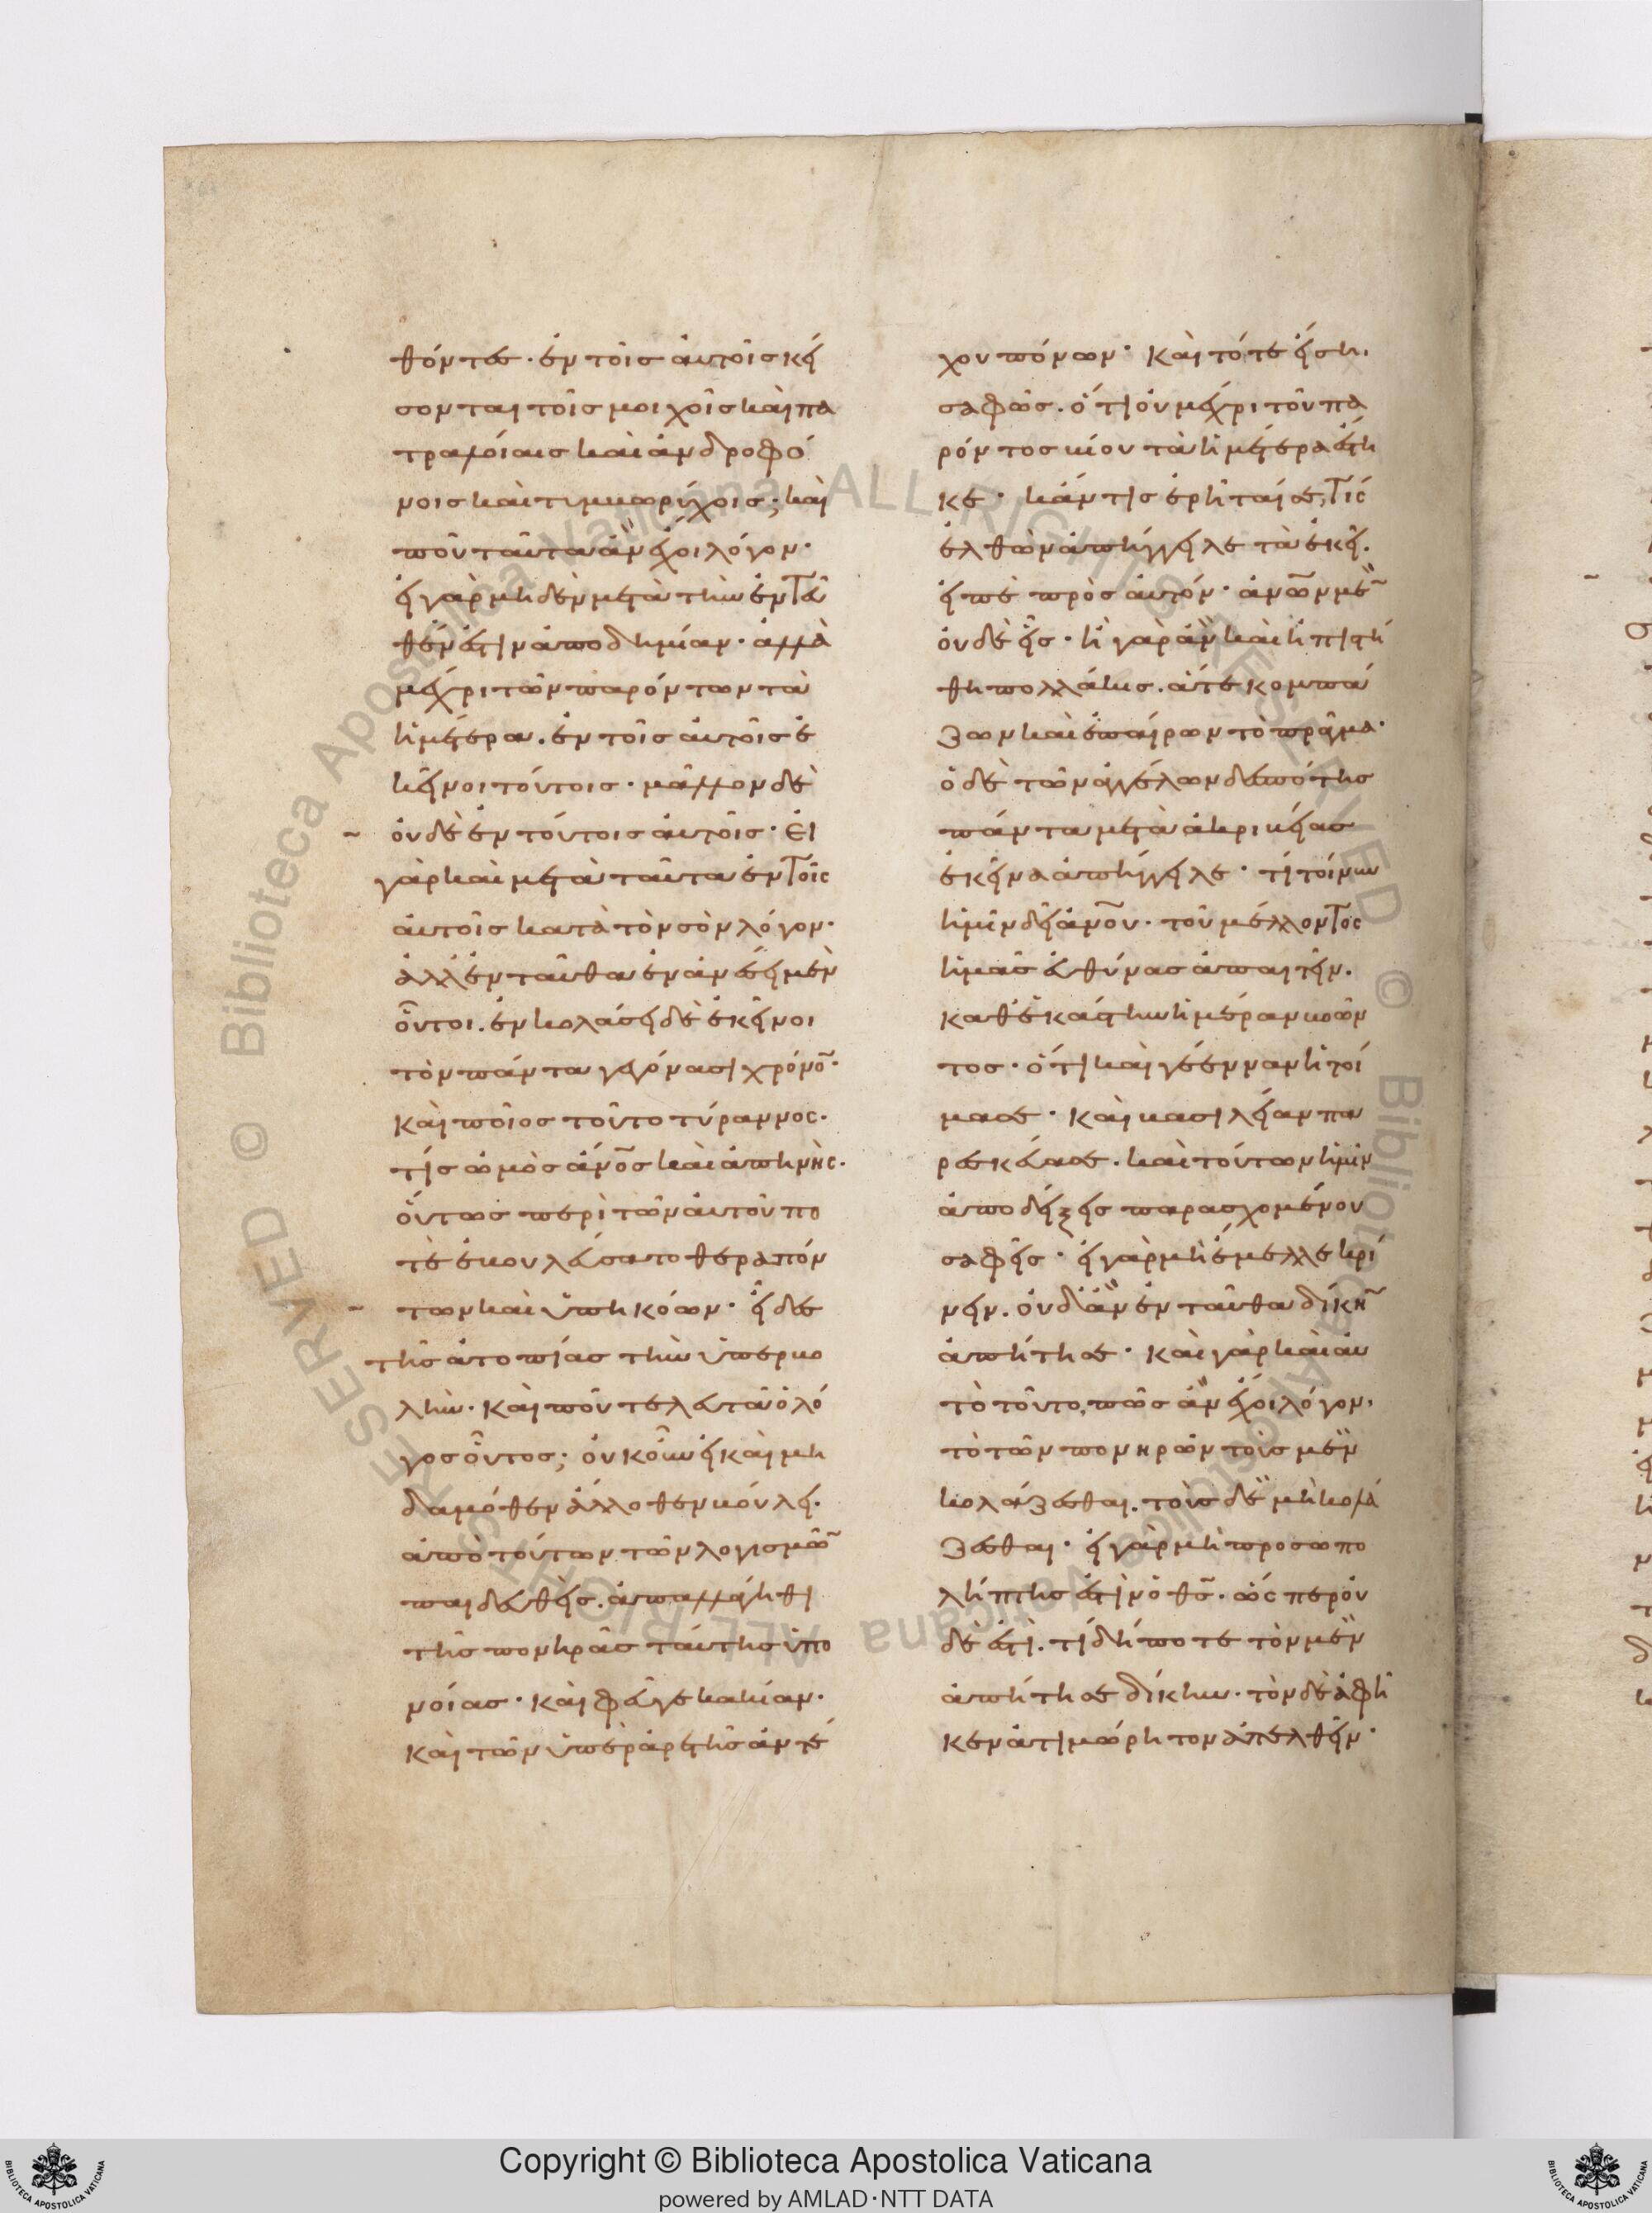 θόντες· ἐν τοῖς αὐτοῖς κεί
σονται τοῖς μοιχοῖς καὶ πα
τραλοίαις καὶ ἀνδροφό
νοις καὶ τυμβωρύχοις; καὶ
ποῦ ταῦτα ἂν ἔχοι λόγον·
εἰ γὰρ μηδὲν μετὰ τὴν ἐντεῦ
θέν ἐστιν ἀποδημίαν· ἀλλὰ
μέχρι τῶν παρόντων τὰ
ἡμέτερα. ἐν τοῖς αὐτοῖς ἐ
κεῖνοι τούτοις· μᾶλλον δὲ
οὐδὲ ἐν τούτοις αὐτοῖς· Εἰ
γὰρ καὶ μετὰ ταῦτα ἐν τοῖς
αὐτοῖς κατὰ τὸν σὸν λόγον·
ἀλλ' ἐνταῦθα ἐν ἀνέσει μὲν
οὗτοι. ἐν κολάσει δὲ ἐκεῖνοι
τὸν πάντα γεγόνασι χρόνο̅·
Καὶ ποῖος τοῦτο τύραννος.
τίς ὠμὸς ἄν̅ο̅ς καὶ ἀπηνής.
οὕτως περὶ τῶν αὐτοῦ πο
τὲ ἐβουλεύσατο θεραπόν
των καὶ ὑπηκόων· εἶδες
τῆς ἀτοπίας τὴν ὑπερβο
λήν. Καὶ ποῦ τελευτᾷ ὁ λό
γος οὗτος; οὐκοῦν εἰ καὶ μη
δαμόθεν ἄλλοθεν βούλει.
ἀπὸ τούτων τῶν λογισμῶ̅
παιδευθείς. ἀπαλλάγηθι
τῆς πονηρᾶς ταύτης ὑπο
νοίας· Καὶ φεῦγε κακίαν.
Καὶ τῶν ὑπὲρ ἀρετῆς ἀντέ
χου πόνων· Καὶ τότε εἴσηι
σαφῶς. ὅτι οὐ μέχρι τοῦ πα
ρόντος βίου τὰ ἡμέτερα ἕστη
κε· κἄν τις ἔρηταί σε, τίς
ἐλθὼν ἀπήγγειλε τὰ ἐκεῖ.
εἰπὲ πρὸς αὐτόν· ἀν̅ω̅ν με̅
οὐδὲ εἷς· ἦ γὰρ ἂν καὶ ἠπιστή
θη πολλάκις. ἅτε κομπά
ζων καὶ ἐπαίρων τὸ πρᾶγμα·
ὁ δὲ τῶν ἀγγέλων δεσπότης
πάντα μετὰ ἀκριβείας
ἐκεῖνα ἀπήγγειλε· τί τοίνυν
ἡμῖν δεῖ ἀν̅ο̅υ· τοῦ μέλλοντος
ἡμᾶς εὐθύνας ἀπαιτεῖν.
καθ' ἑκάστην ἡμέραν βοῶν
τος· ὅτι καὶ γέενναν ἡτοί
μασε· Καὶ βασιλείαν πα
ρεσκεύασε. καὶ τούτων ἡμῖν
ἀποδείξεις παρασχομένου
σαφεῖς· εἰ γὰρ μὴ ἔμελλε κρί
νειν. οὐδ' ἂν ἐνταῦθα δίκη̅
ἀπήιτησε· Καὶ γὰρ καὶ αὐ
τὸ τοῦτο, πῶς ἂν ἔχοι λόγον.
τὸ τῶν πονηρῶν τοὺς μὲν
κολάζεσθαι. τοὺς δὲ μὴ κολά
ζεσθαι· εἰ γὰρ μὴ προσωπο
λήπτης ἐστὶν ὁ θ̅ς̅· ὥσπερ οὐ
δέ ἐστι. τί δήποτε τὸν μὲν
ἀπήιτησε δίκην. τὸν δὲ ἀφῆ
κεν ἀτιμώρητον ἀπελθεῖν·
Copyright © Biblioteca Apostolica Vaticana
powered by AMLAD·NTT DATA